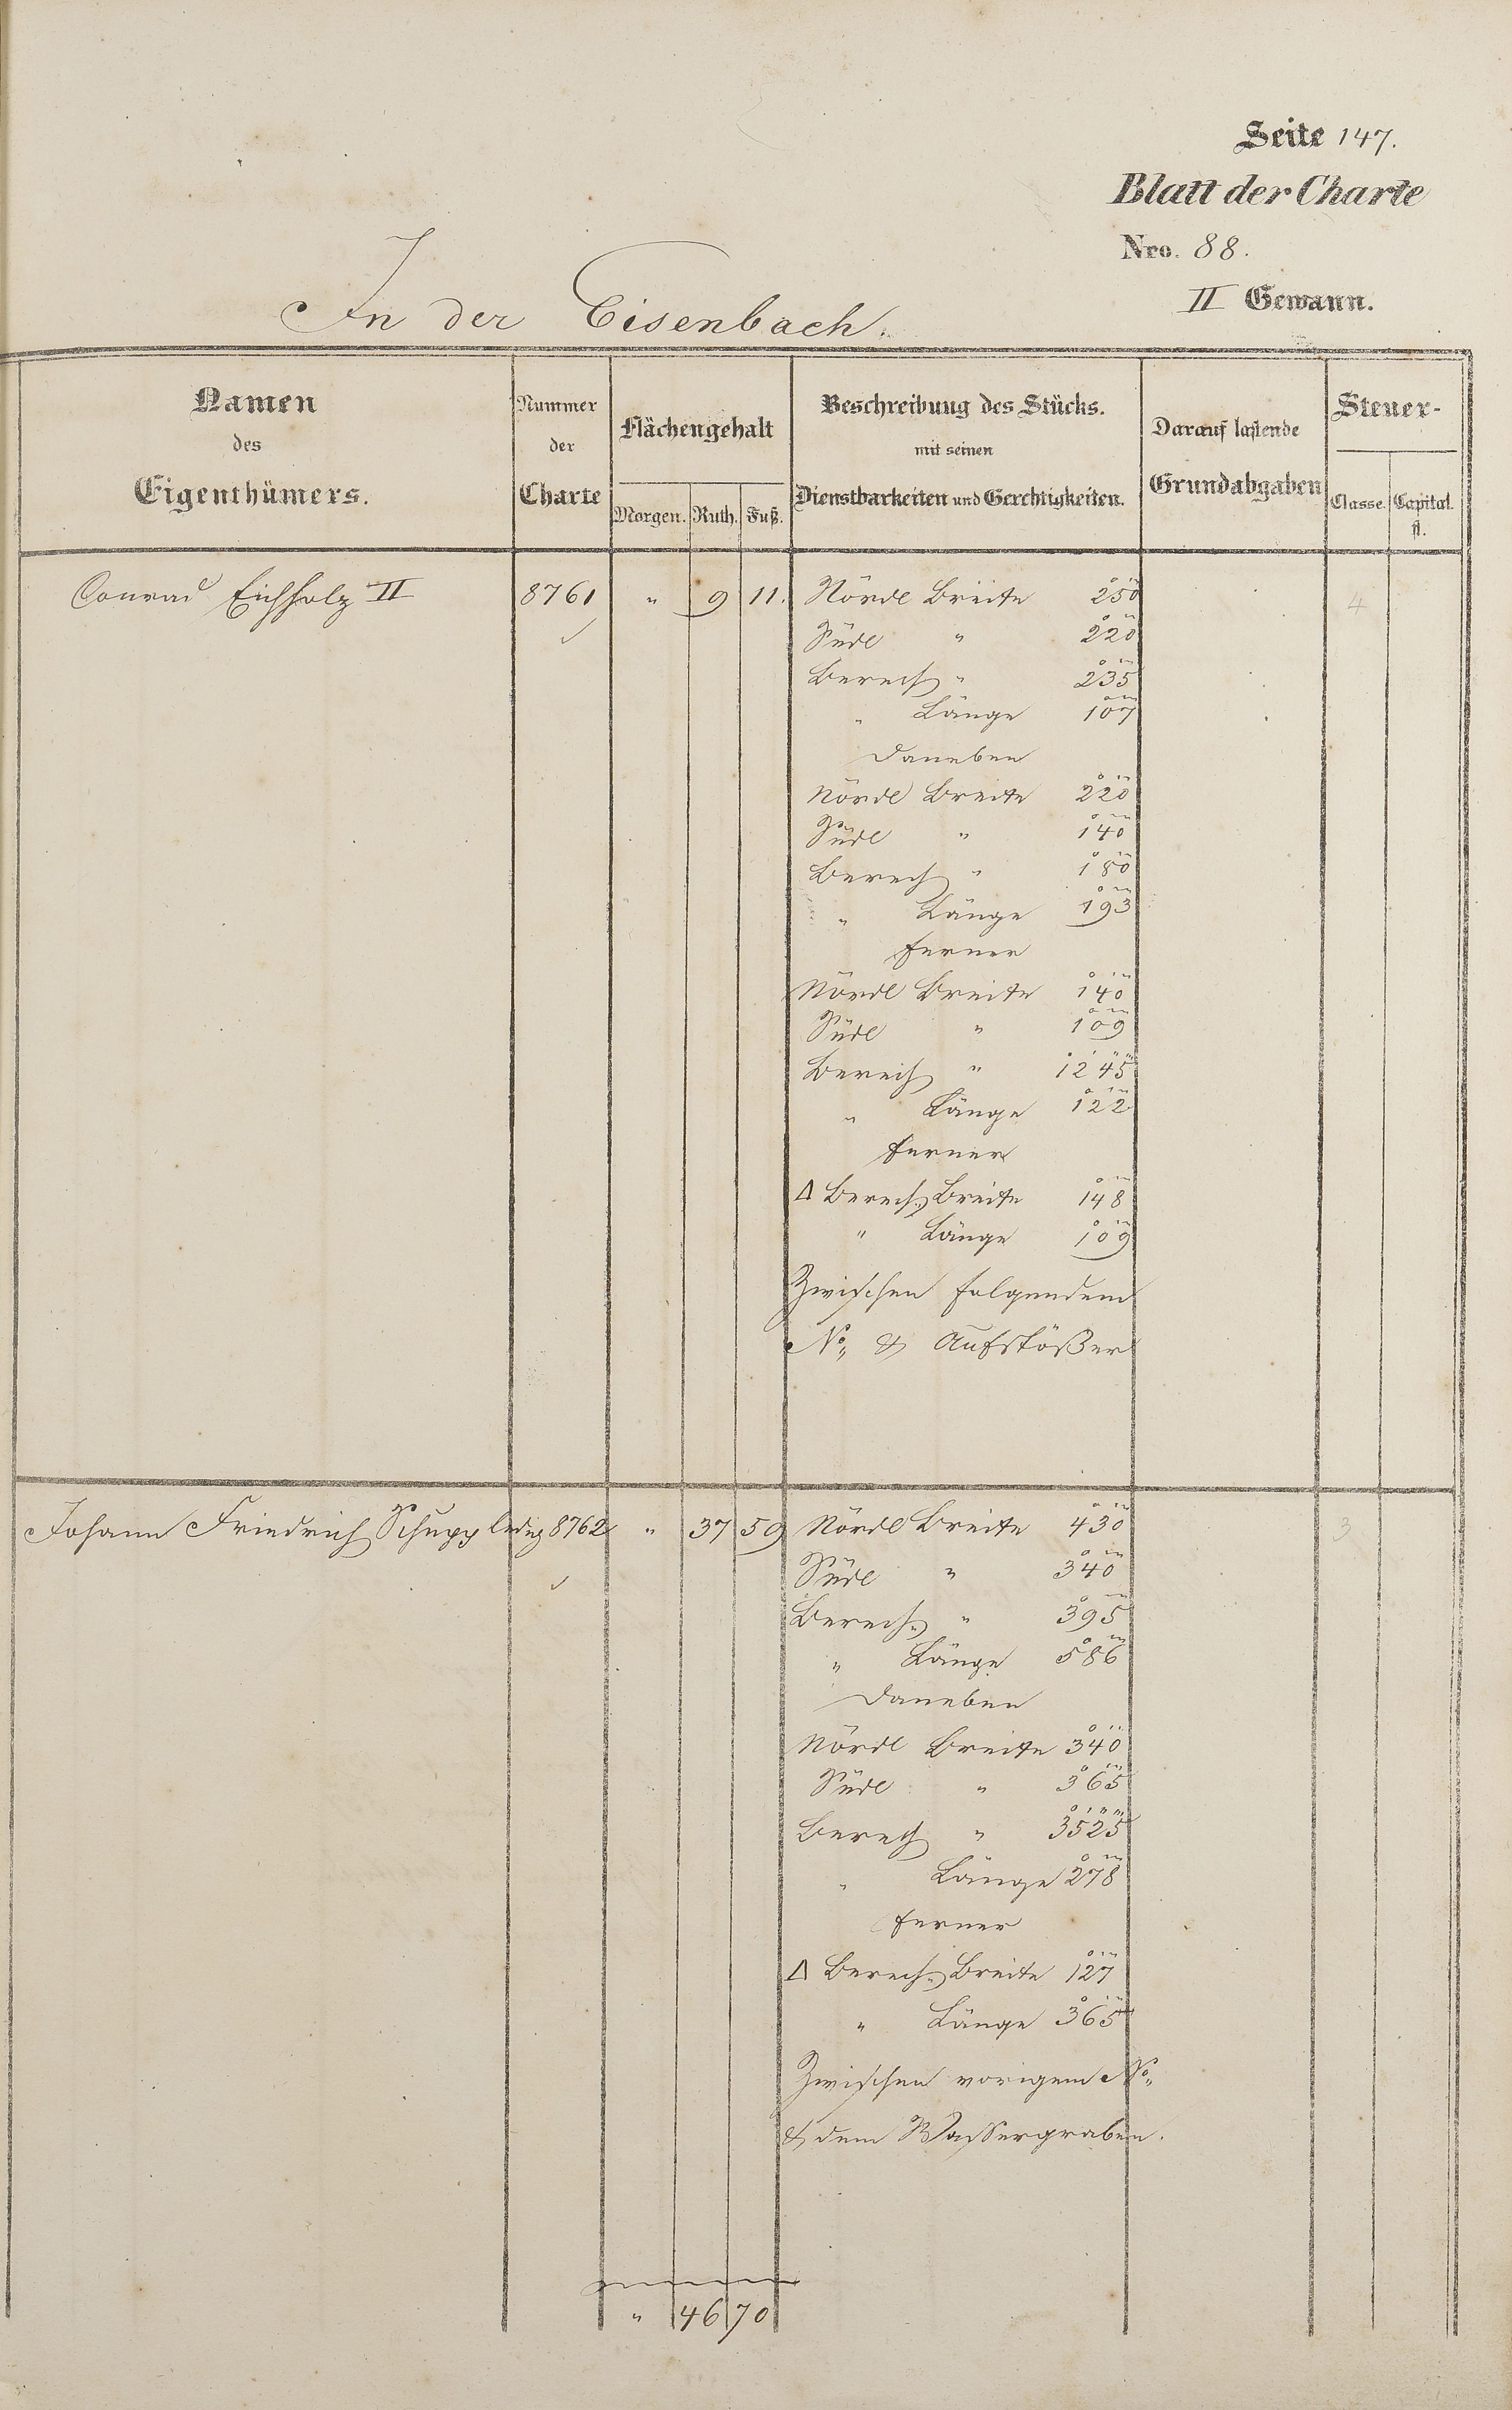 Seite 147.
Blatt der Charte
Nro. 88.
II Gewann.
In der Eisenbach.
Namen des Eigenthümers.
Nummer der Charte
Flächengehalt
Morgen. Ruth. Fuß.
Beschreibung des Stücks.
mit seinen
Dienstbarkeiten und Gerechtigkeiten.
Darauf lastende
Grundabgaben
Steuer-
Classe. Capital.
fl.
Conrad Eichholz II 8761 " 9 11. Nördl Breite 250 4
Südl " 220
Berech " 235
" Länge 107
Daneben
Nördl Breite 220
Südl " 140
Berech " 180
" Länge 193
ferner
Nördl Breite 140
Südl " 109
Berech " 1245
" Länge 122
ferner
Δ Berech. Breite 148
" Länge 109
Zwischen folgendem
No. & Aufstößer
Johann Friedrich Schupp ledig 8762 " 37 59 Nördl Breite 430 3
Südl " 340
Berech. " 395
" Länge 586
Daneben
Nördl Breite 340
Südl " 365
Berech " 3525
" Länge 278
ferner
Δ Berech. Breite 127
" Länge 365
Zwischen vorigem No.
& dem Wassergraben.
" 46 70